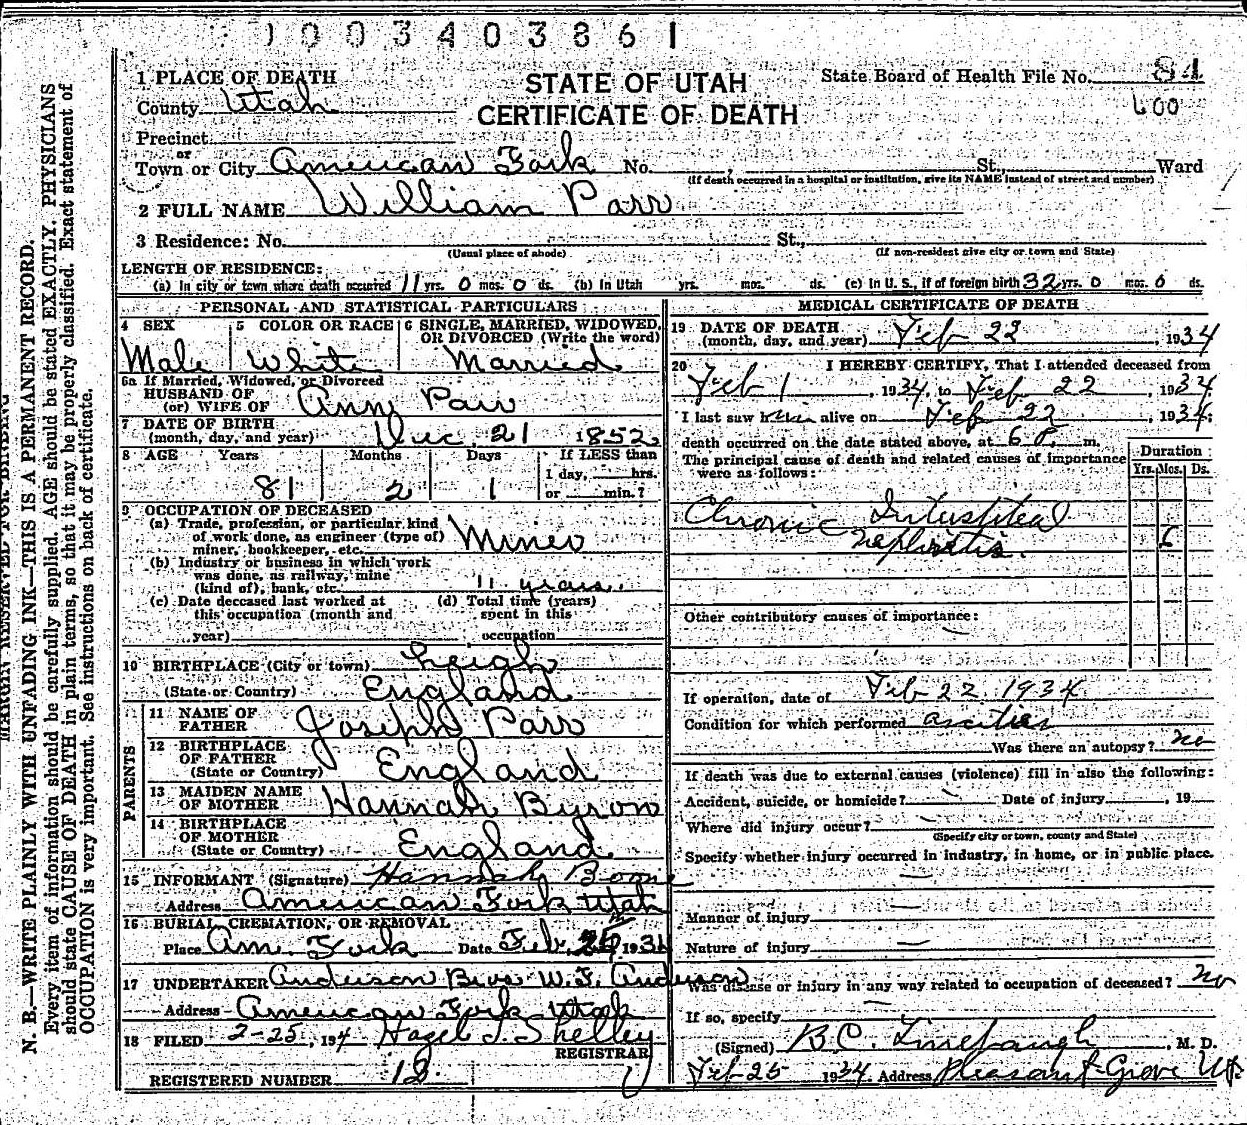 1003403861
1 PLACE OF DEATH
STATE OF UTAH
State Board of Health File No. 84
County Utah
CERTIFICATE OF DEATH
600
Precinct
or
Town or City American Fork No. St., Ward
(If death occurred in a hospital or institution, give its NAME instead of street and number)
2 FULL NAME William Parr
3 Residence: No. St.,
(Usual place of abode) (If non-resident give city or town and State)
LENGTH OF RESIDENCE:
(a) In city or town where death occurred 11 yrs. 0 mos. 0 ds. (b) In Utah yrs. mos. ds. (c) In U. S., if of foreign birth 32 yrs. 0 mos. 0 ds.
PERSONAL AND STATISTICAL PARTICULARS
4 SEX
Male
5 COLOR OR RACE
White
6 SINGLE, MARRIED, WIDOWED,
OR DIVORCED (Write the word)
Married
6a If Married, Widowed, or Divorced
HUSBAND OF
(or) WIFE OF Ann Parr
7 DATE OF BIRTH
(month, day, and year) Dec. 21 1852
8 AGE Years Months Days If LESS than
1 day, hrs.
81 2 1 or min.?
9 OCCUPATION OF DECEASED
(a) Trade, profession, or particular kind
of work done, as engineer (type of)
miner, bookkeeper, etc. Miner
(b) Industry or business in which work
was done, as railway, mine
(kind of), bank, etc. 11 years.
(c) Date deceased last worked at
this occupation (month and
year)
(d) Total time (years)
spent in this
occupation
10 BIRTHPLACE (City or town) Leigh
(State or Country) England
PARENTS
11 NAME OF
FATHER Joseph Parr
12 BIRTHPLACE
OF FATHER
(State or Country) England
13 MAIDEN NAME
OF MOTHER Hannah Byrom
14 BIRTHPLACE
OF MOTHER
(State or Country) England
15 INFORMANT (Signature) Hannah Boone
Address American Fork Utah
16 BURIAL, CREMATION, OR REMOVAL
Place Am. Fork Date Feb. 1934
17 UNDERTAKER Anderson Bros. W.J. Anderson
Address American Fork Utah
18 FILED 2-25, 1934 Hazel J. Shelley
REGISTRAR
REGISTERED NUMBER 12
MEDICAL CERTIFICATE OF DEATH
19 DATE OF DEATH
(month, day, and year) Feb 22, 1934
20 I HEREBY CERTIFY, That I attended deceased from
Feb 1, 1934, to Feb 22, 1934
I last saw him alive on Feb 22, 1934;
death occurred on the date stated above, at 6 P. m.
The principal cause of death and related causes of importance
were as follows:
Duration
Yrs. Mos. Ds.
Chronic Interstitial
Nephritis. 6
Other contributory causes of importance:
If operation, date of Feb 22 1934
Condition for which performed ascites
Was there an autopsy? no
If death was due to external causes (violence) fill in also the following:
Accident, suicide, or homicide? Date of injury , 19
Where did injury occur?
(Specify city or town, county and State)
Specify whether injury occurred in industry, in home, or in public place.
Manner of injury
Nature of injury
Was disease or injury in any way related to occupation of deceased? no
If so, specify
(Signed) B.C. Linebaugh, M. D.
Feb 25 1934. Address Pleasant Grove Ut.
MARGIN RESERVED FOR BINDING
N. B.—WRITE PLAINLY WITH UNFADING INK—THIS IS A PERMANENT RECORD.
Every item of information should be carefully supplied. AGE should be stated EXACTLY. PHYSICIANS
should state CAUSE OF DEATH in plain terms, so that it may be properly classified. Exact statement of
OCCUPATION is very important. See instructions on back of certificate.